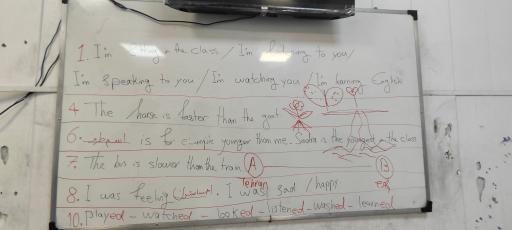 1. I'm sitting in the class / I'm listening to you /
I'm speaking to you / I'm watching you / I'm learning English
4 - The horse is faster than the goat
6. is for example younger than me. is the youngest in the class
7. The bus is slower than the train A B
Tehran
8. I was feeling I was sad / happy
10. played - watched - looked - listened - washed - learned